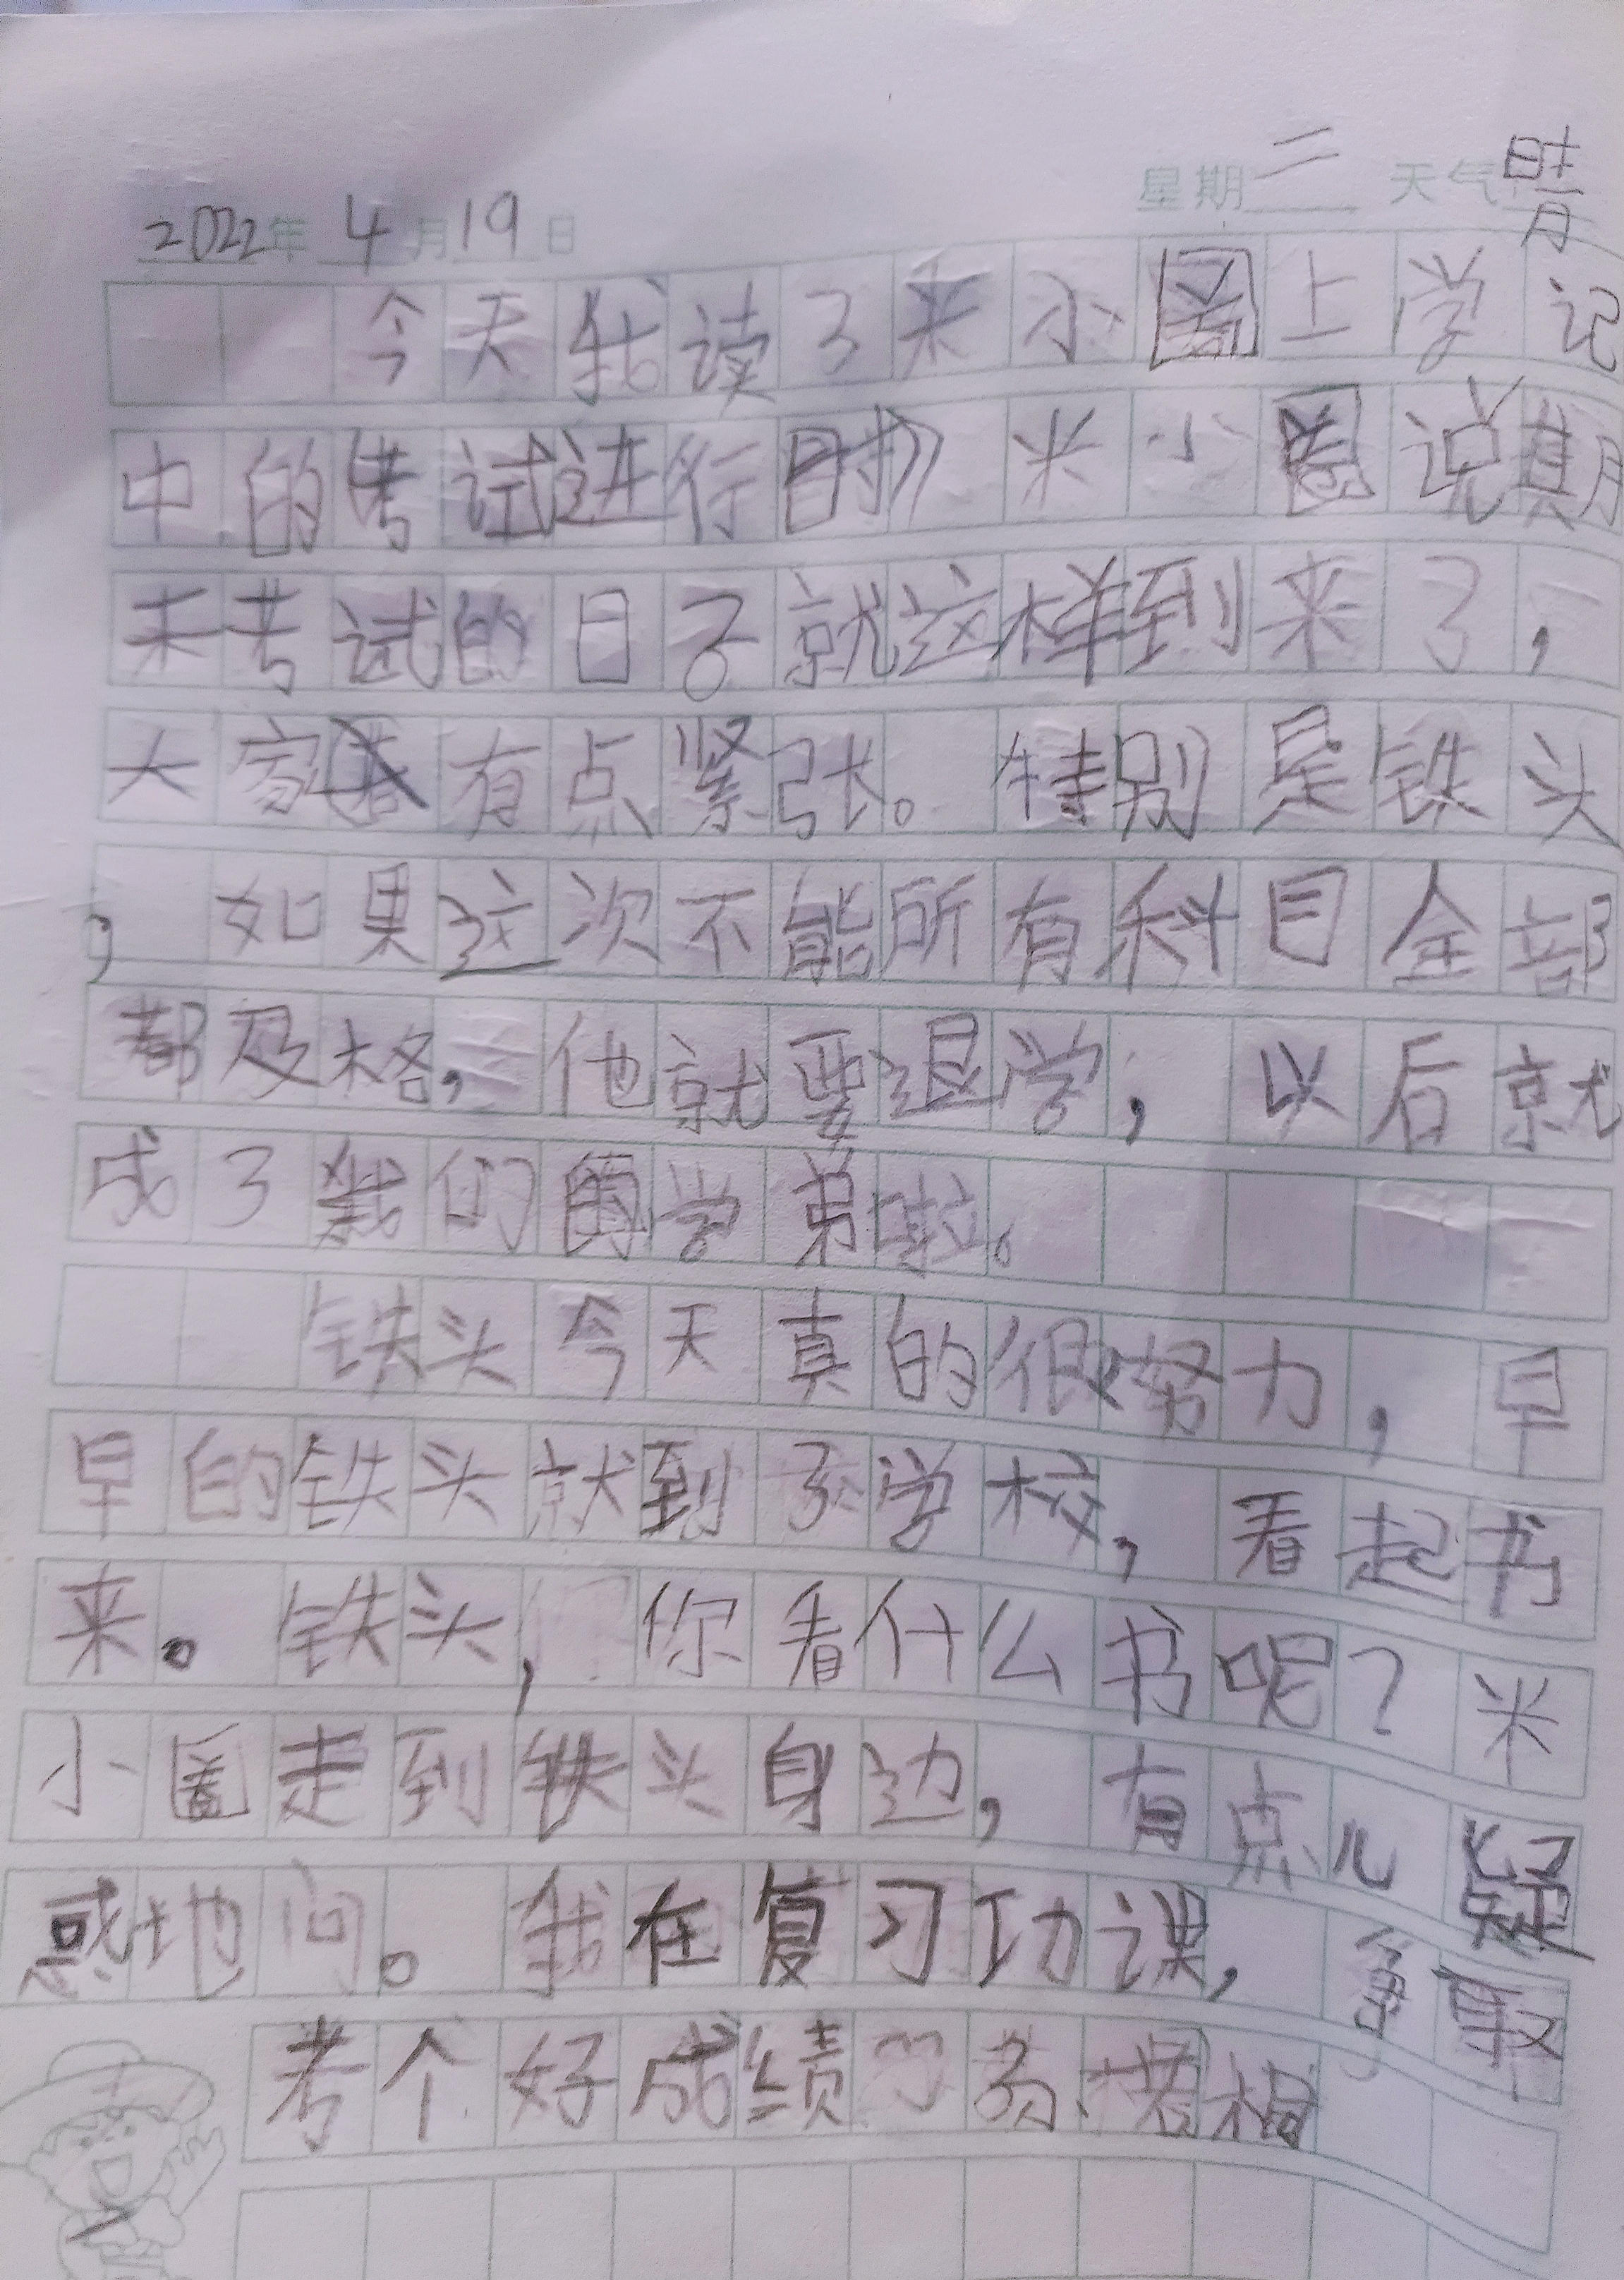 2022年 4月19日 星期二 天气 晴
今天我读了米小圈上学记
中的考试进行时》米小圈说期
末考试的日子就这样到来了，
大家有点紧张。特别是铁头
，如果这次不能所有科目全部
都及格，他就要退学，以后就
成了我们的学弟啦。
铁头今天真的很努力，早
早的铁头就到了学校，看起书
来。铁头，你看什么书呢？米
小圈走到铁头身边，有点儿疑
惑地问。我在复习功课，争取
考个好成绩